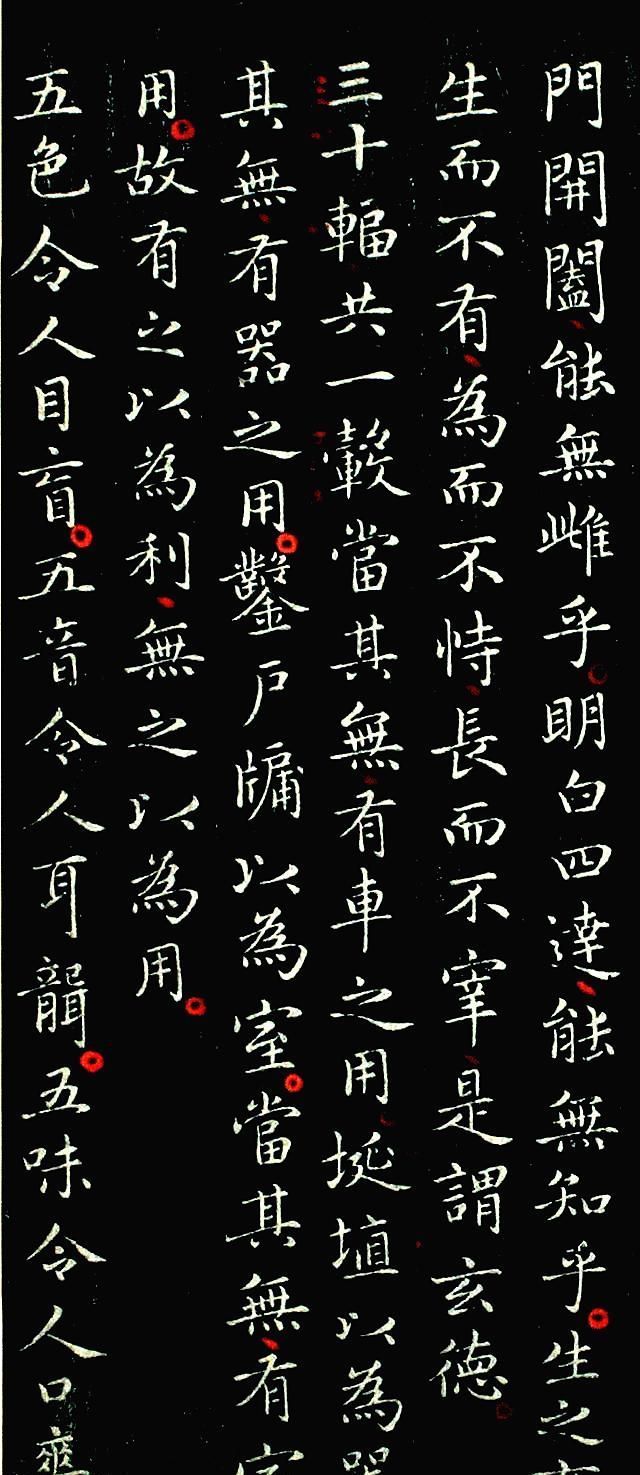 門開闔能無雌乎明白四達能無知乎生之
生而不有為而不恃長而不宰是謂玄德
三十輻共一轂當其無有車之用埏埴以為器
其無有器之用鑿戶牖以為室當其無有
用故有之以為利無之以為用
五色令人目盲五音令人耳聾五味令人口爽